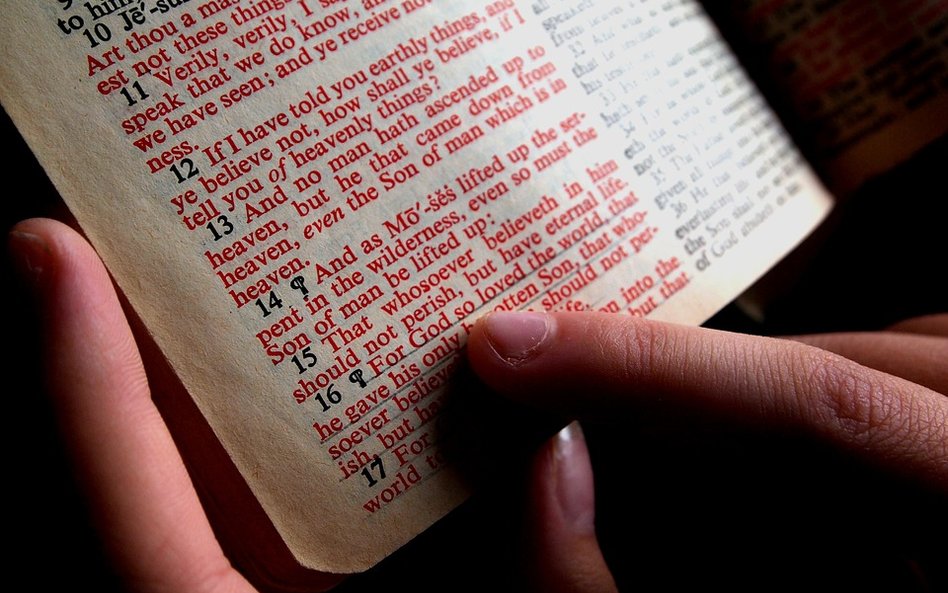 to him,
10 Jé´-su
Art thou a mas
est not these things
11 Verily, verily, I say
speak that we do know, and
we have seen; and ye receive not
ness.
12 If I have told you earthly things, and
ye believe not, how shall ye believe, if I
tell you of heavenly things?
13 And no man hath ascended up to
heaven, but he that came down from
heaven, even the Son of man which is in
heaven.
14 ¶ And as Mō´-šĕs lifted up the ser-
pent in the wilderness, even so must the
Son of man be lifted up:
15 That whosoever believeth in him
should not perish, but have eternal life.
16 ¶ For God so loved the world, that
he gave his only b otten Son, that who-
soever believe should not per-
ish, but ha life.
17 For on into the
world to but that
all
speaketh
from
32 And
that he
his
hath
34 F
eth
not
35 The Father
given all things
36 He that
everlasting
the Son shall
of God abideth